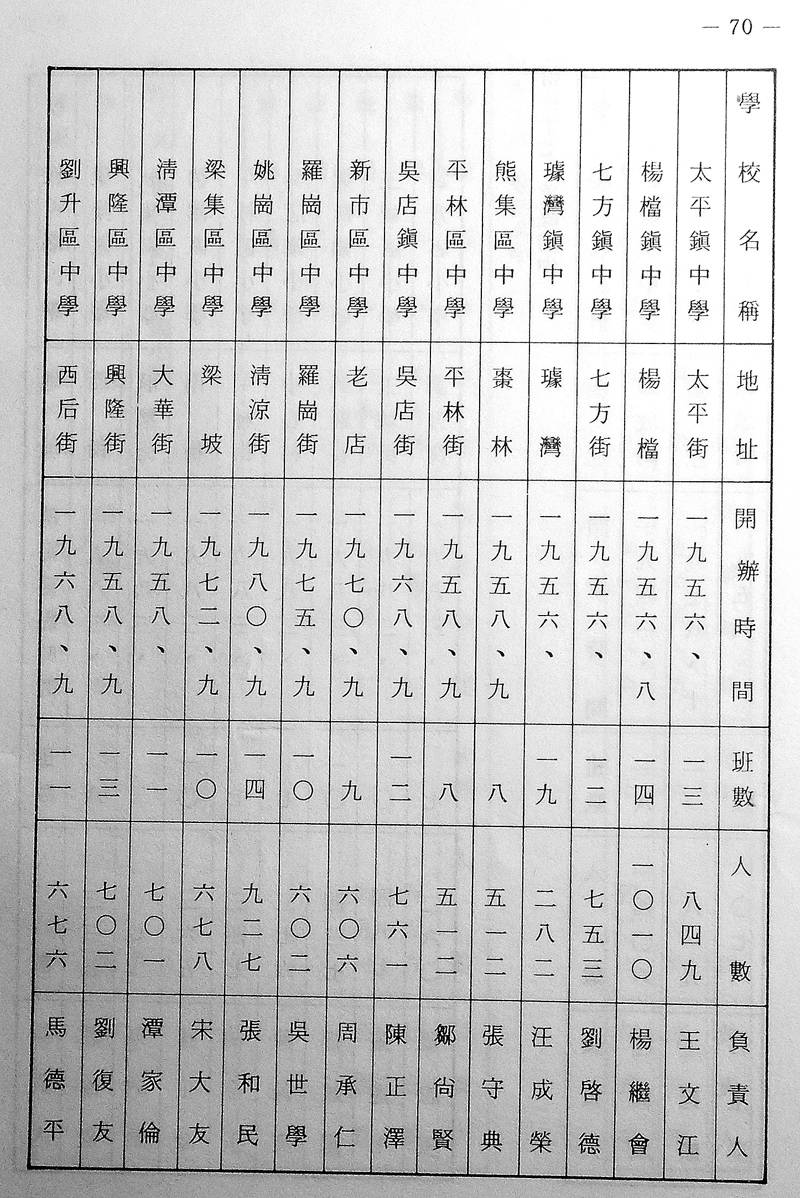 — 70 —
學校名稱 地址 開辦時間 班數 人數 負責人
太平鎮中學 太平街 一九五六、 一三 八四九 王文江
楊檔鎮中學 楊檔 一九五六、八 一四 一〇一〇 楊繼會
七方鎮中學 七方街 一九五六、 一二 七五三 劉啓德
璩灣鎮中學 璩灣 一九五六、 一九 二八二 汪成榮
熊集區中學 棗林 一九五八、九 八 五一二 張守典
平林區中學 平林街 一九五八、九 八 五一二 鄒尙賢
吳店鎮中學 吳店街 一九六八、九 一二 七六一 陳正澤
新市區中學 老店 一九七〇、九 九 六〇六 周承仁
羅崗區中學 羅崗街 一九七五、九 一〇 六〇二 吳世學
姚崗區中學 淸涼街 一九八〇、九 一四 九二七 張和民
梁集區中學 梁坡 一九七二、九 一〇 六七八 宋大友
淸潭區中學 大華街 一九五八、 一一 七〇一 潭家倫
興隆區中學 興隆街 一九五八、九 一三 七〇二 劉復友
劉升區中學 西后街 一九六八、九 一一 六七六 馬德平